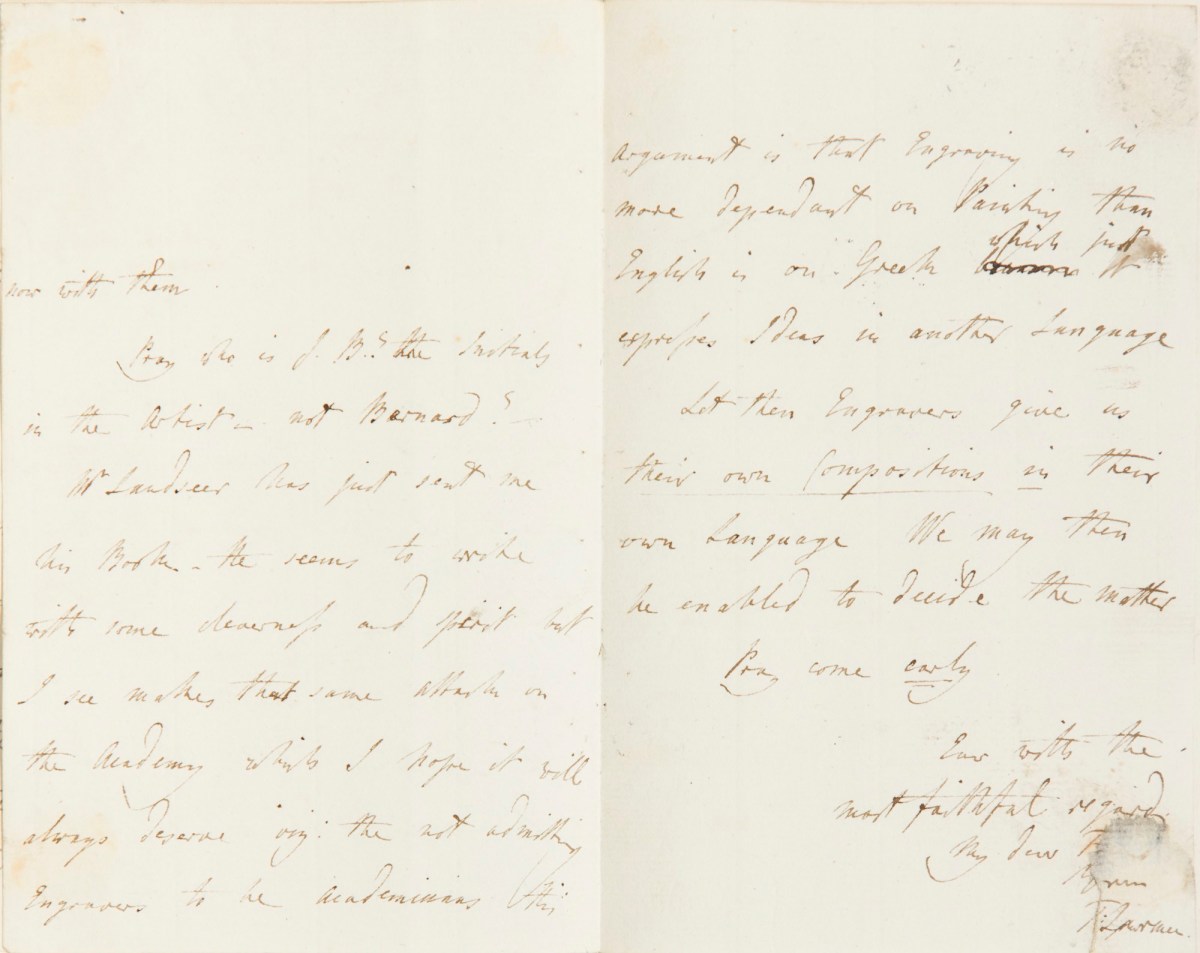 now with them.
Pray who is J. B. the Initials
in the Artist – not Barnard?
Mr Landseer has just sent me
his Book – He seems to write
with some cleverness and spirit but
I see makes that same attack on
the Academy which I hope it will
always deserve viz: the not admitting
Engravers to be Academicians his
Argument is that Engraving is no
more dependant on Painting than
English is on Greek which just
it
expresses Ideas in another Language
Let then Engravers give us
their own Compositions in their
own Language We may then
be enabled to decide the matter
Pray come early
Ever with the
most faithful regard
My dear
T. Lawrence